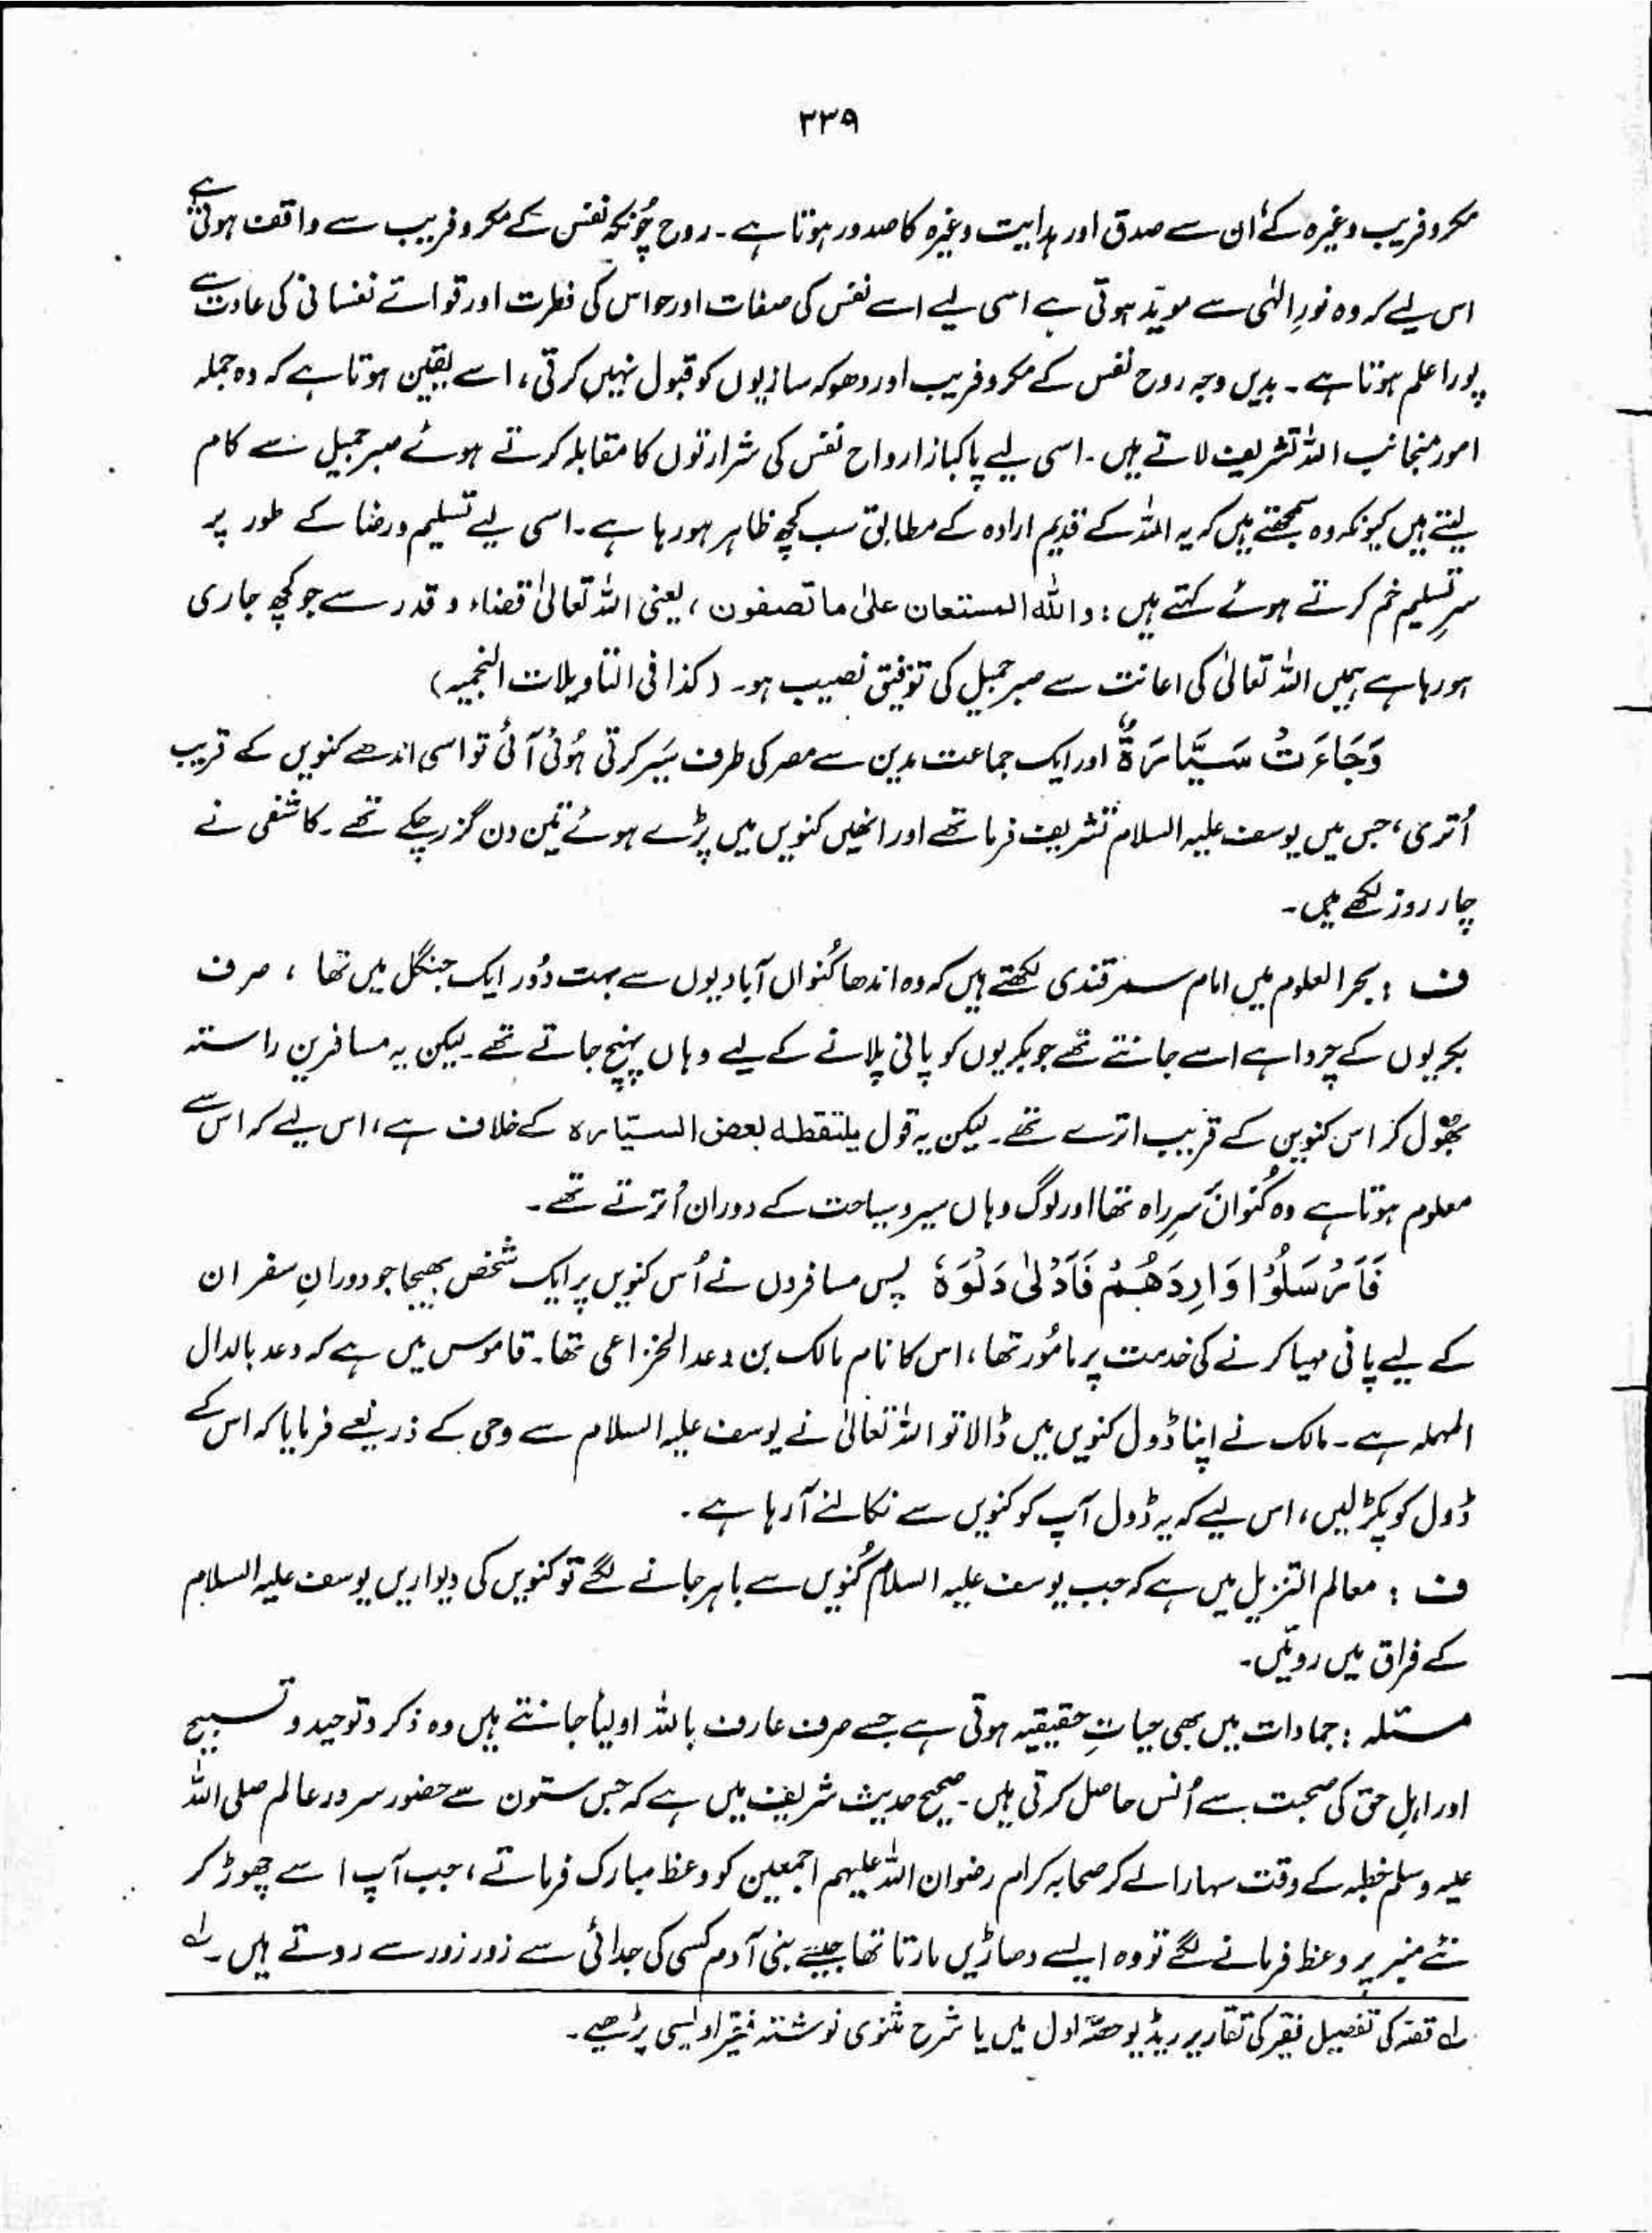 ۳۳۹
مکر و فریب وغیرہ کے اُن سے صدق اور ہدایت وغیرہ کا صدور ہوتا ہے۔ روح چُونکہ نفس کے مکر و فریب سے واقف ہوتی ہے
اس لیے کہ وہ نورِ الٰہی سے موید ہوتی ہے اسی لیے اسے نفس کی صفات اور حواس کی فطرت اور قوائے نفسانی کی عادت سے
پورا علم ہوتا ہے۔ بدیں وجہ روح نفس کے مکر و فریب اور دھوکہ سازیوں کو قبول نہیں کرتی، اسے یقین ہوتا ہے کہ وہ جملہ
امور منجانب اللہ تشریف لاتے ہیں۔ اسی لیے پاکباز ارواح نفس کی شرارتوں کا مقابلہ کرتے ہوئے صبرِ جمیل سے کام
لیتے ہیں کیونکہ وہ سمجھتے ہیں کہ یہ اللہ کے قدیم ارادہ کے مطابق سب کچھ ظاہر ہو رہا ہے۔ اسی لیے تسلیم و رضا کے طور پر
سرِ تسلیم خم کرتے ہوئے کہتے ہیں : واللہ المستعان علیٰ ما تصفون ، یعنی اللہ تعالیٰ قضاء و قدر سے جو کچھ جاری
ہو رہا ہے ہمیں اللہ تعالیٰ کی اعانت سے صبرِ جمیل کی توفیق نصیب ہو۔ (کذا فی التاویلات النجمیہ)
وَجَاءَتْ سَيَّارَةٌ اور ایک جماعت مدین سے مصر کی طرف سَیر کرتی ہُوئی آئی تو اسی اندھے کنویں کے قریب
اُتری، جس میں یوسف علیہ السلام تشریف فرما تھے اور انھیں کنویں میں پڑے ہوئے تین دن گزر چکے تھے۔ کاشفی نے
چار روز لکھے ہیں۔
ف : بحر العلوم میں امام سمرقندی لکھتے ہیں کہ وہ اندھا کُنواں آبادیوں سے بہت دُور ایک جنگل میں تھا ، صرف
بکریوں کے چرواہے اسے جانتے تھے جو بکریوں کو پانی پلانے کے لیے وہاں پہنچ جاتے تھے۔ لیکن یہ مسافرین راستہ
بھُول کر اس کنویں کے قریب اترے تھے۔ لیکن یہ قول یلتقطہ بعض السیّارہ کے خلاف ہے، اس لیے کہ اس سے
معلوم ہوتا ہے وہ کُنواں سرِ راہ تھا اور لوگ وہاں سیر و سیاحت کے دوران اُترتے تھے۔
فَاَرْسَلُوْا وَارِدَهُمْ فَاَدْلٰی دَلْوَهٗ پس مسافروں نے اُس کنویں پر ایک شخص بھیجا جو دورانِ سفر ان
کے لیے پانی مہیا کرنے کی خدمت پر مامُور تھا، اس کا نام مالک بن دعد الخزاعی تھا۔ قاموس میں ہے کہ دعد بالدال
المہملہ ہے۔ مالک نے اپنا ڈول کنویں میں ڈالا تو اللہ تعالیٰ نے یوسف علیہ السلام سے وحی کے ذریعے فرمایا کہ اس کے
ڈول کو پکڑ لیں، اس لیے کہ یہ ڈول آپ کو کنویں سے نکالنے آ رہا ہے۔
ف : معالم التنزیل میں ہے کہ جب یوسف علیہ السلام کُنویں سے باہر جانے لگے تو کنویں کی دیواریں یوسف علیہ السلام
کے فراق میں روئیں۔
مسئلہ : جمادات میں بھی حیاتِ حقیقیہ ہوتی ہے جسے صرف عارف باللہ اولیأ جانتے ہیں وہ ذکر و توحید و تسبیح
اور اہلِ حق کی صحبت سے اُنس حاصل کرتی ہیں۔ صحیح حدیث شریف میں ہے کہ جس ستون سے حضور سرورِ عالم صلی اللہ
علیہ وسلم خطبہ کے وقت سہارا لے کر صحابہ کرام رضوان اللہ علیہم اجمعین کو وعظ مبارک فرماتے، جب آپ اسے چھوڑ کر
نئے منبر پر وعظ فرمانے لگے تو وہ ایسے دھاڑیں مارتا تھا جیسے بنی آدم کسی کی جدائی سے زور زور سے روتے ہیں۔ لہ
لہ قصہ کی تفصیل فقیر کی تقاریر ریڈیو حصّہ اول میں یا شرح مثنوی نوشتہ فقیر اویسی پڑھیے۔